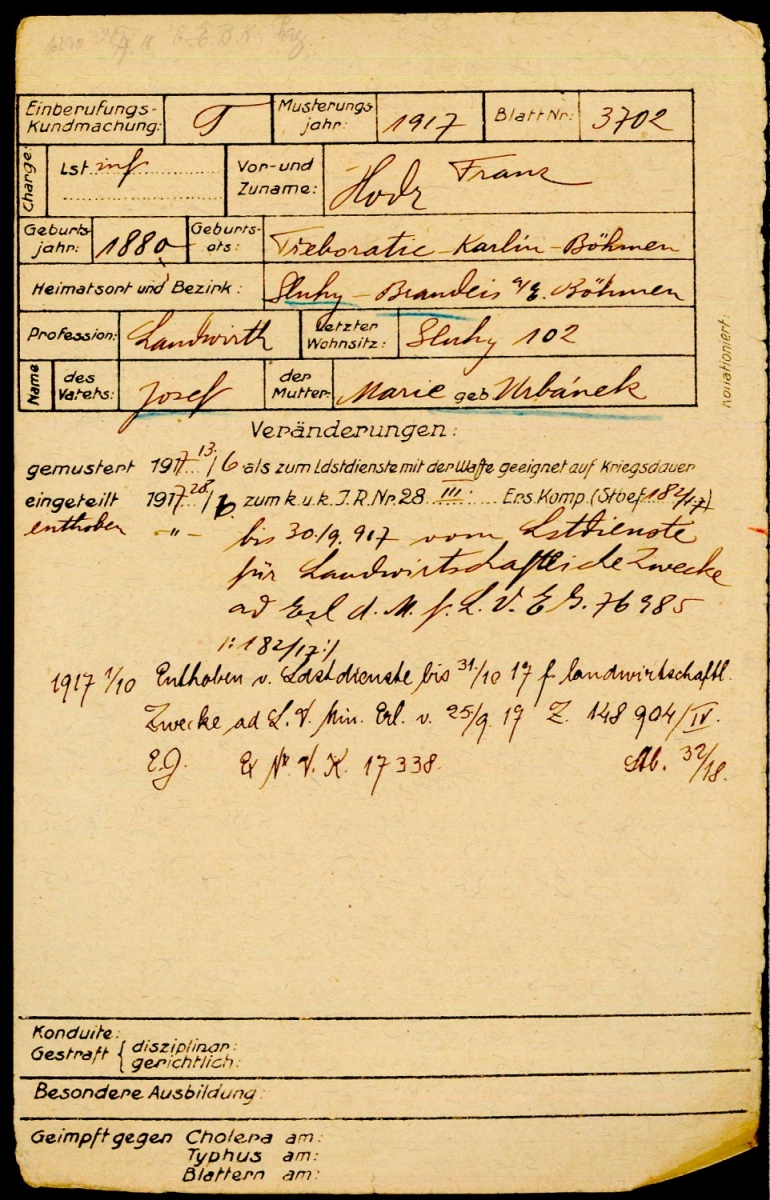 Einberufungs-Kundmachung: T Musterungsjahr: 1917 Blatt Nr: 3702
Charge: Lst inf Vor-und Zuname: Hodr Franz
Geburtsjahr: 1880 Geburtsots: Treboratic - Karlin - Böhmen
Heimatsort und Bezirk: Sluhy - Brandeis a/E. Böhmen
Profession: Landwirth Letzter Wohnsitz: Sluhy 102
Name des Vaters: Josef der Mutter: Marie geb Urbánek
kollationiert:
Veränderungen:
gemustert 1917 13./6 als zum Ldstdienste mit der Waffe geeignet auf Kriegsdauer
eingeteilt 1917 28/6 zum k.u.k. J.R.Nr. 28 III. Ers. Komp. (Stbef. 182/17)
enthoben -"- bis 30/9. 917 vom Lstdienste
für Landwirtschaftliche Zwecke
ad Erl d. M. f. L. V. E G. 76985
/:182/17:/
1917 1/10 Enthoben v. Ldstdienste bis 31./10 17 f. landwirtschaftl.
Zwecke ad L. V. Min. Erl. v. 25/9 17 Z. 148 904/IV.
E.G. Ex Nr. V. K. 17338. Stb. 32/18.
Konduite:
Gestraft { disziplinar:
gerichtlich:
Besondere Ausbildung:
Geimpft gegen Cholera am:
Typhus am:
Blattern am: